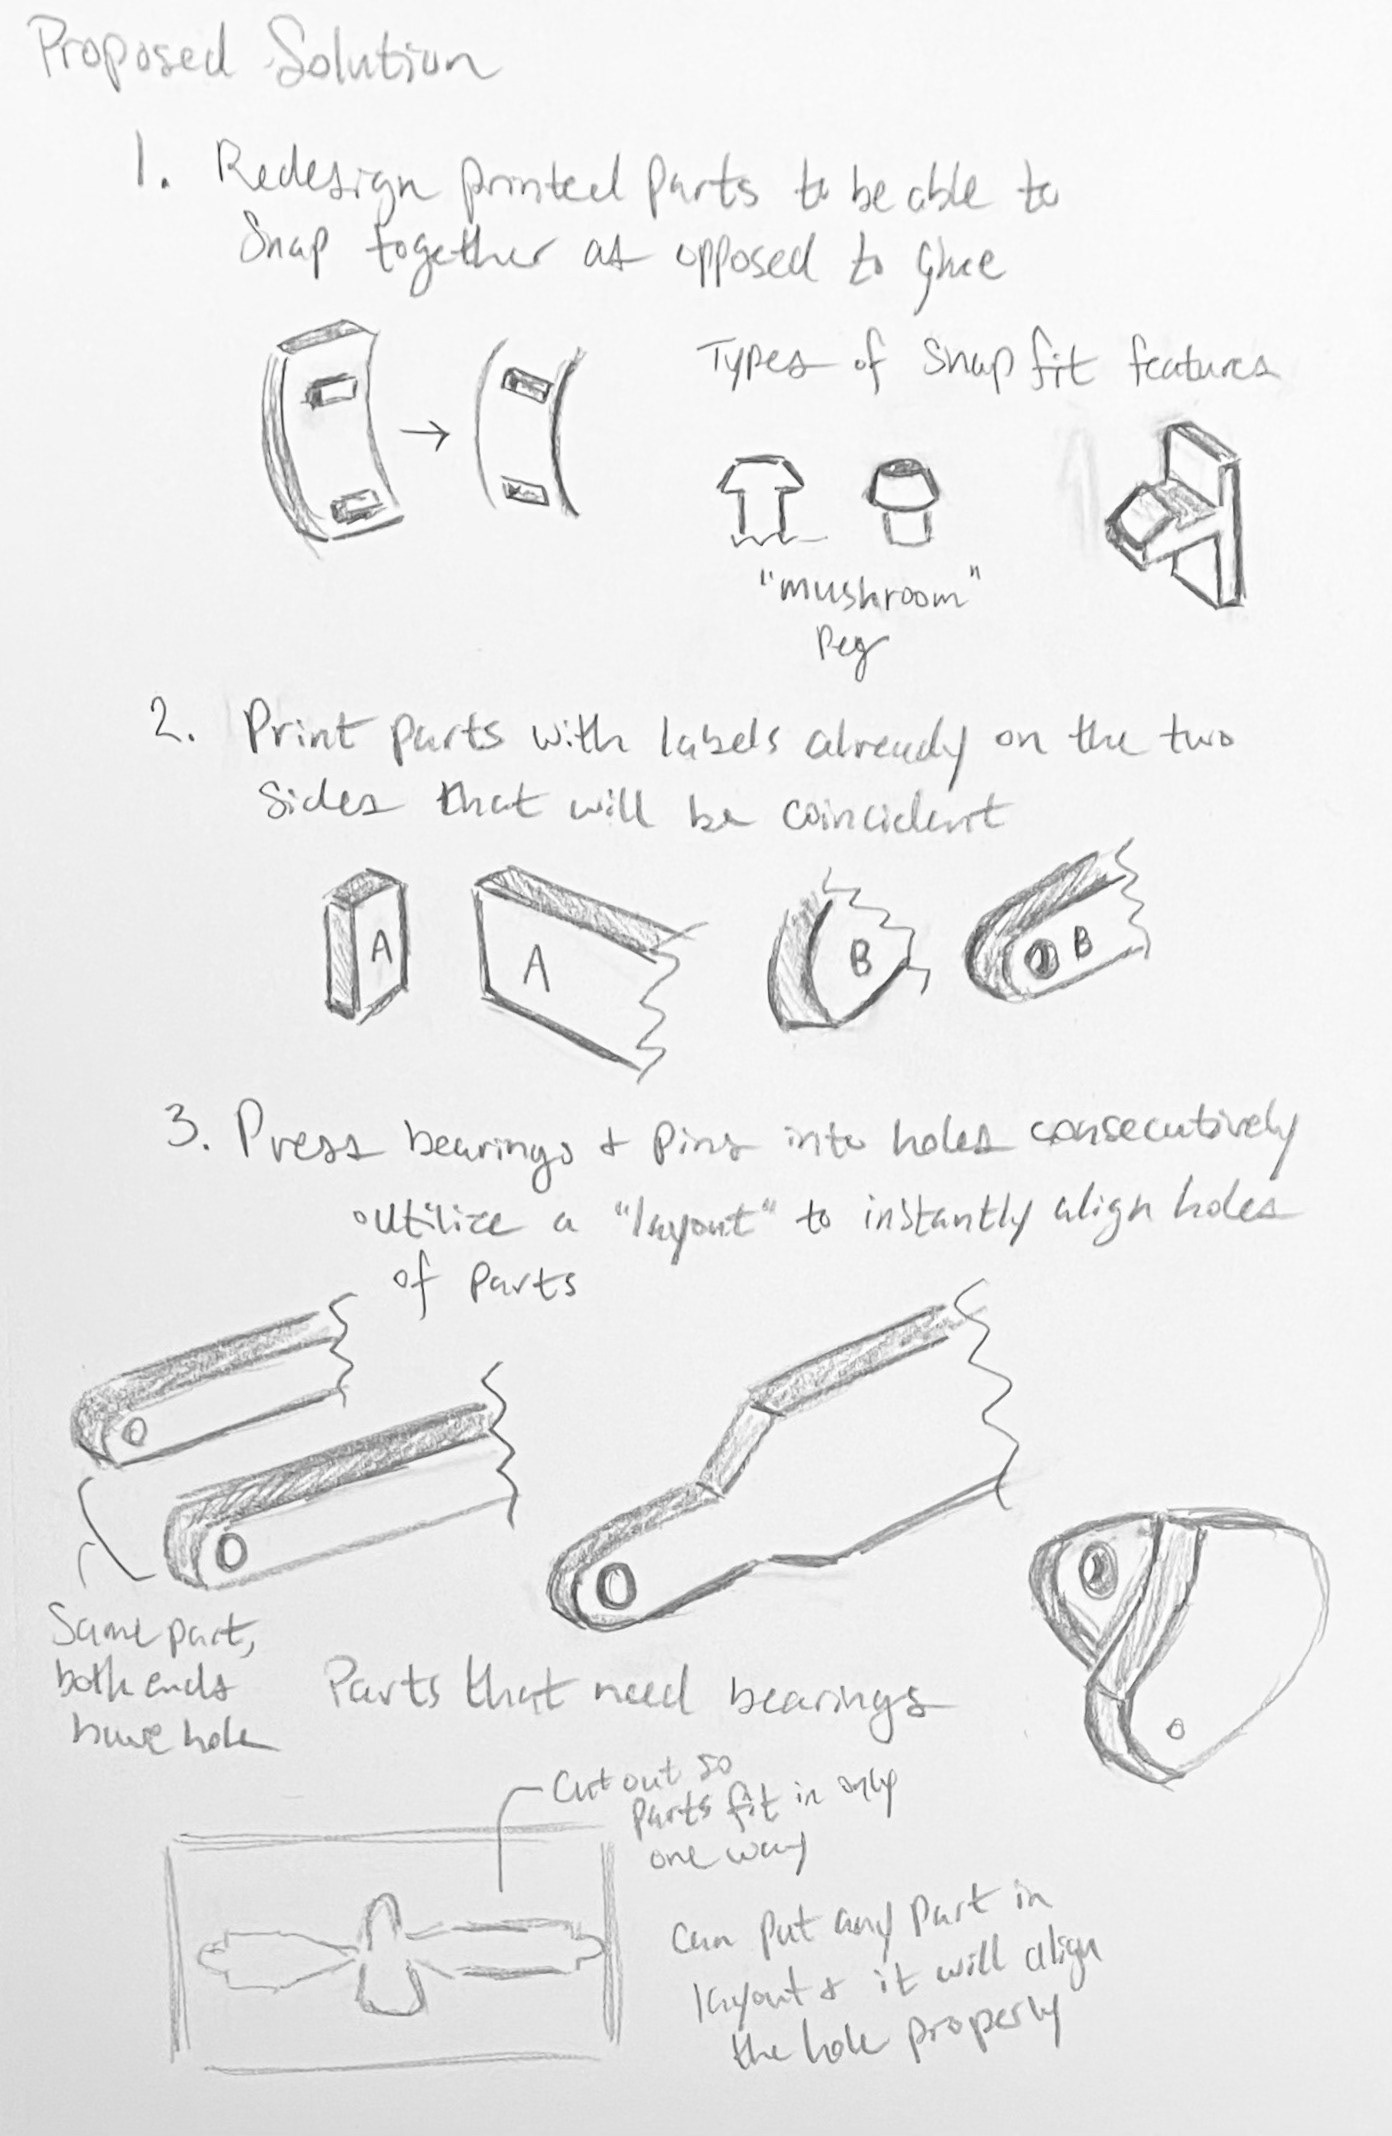 Proposed Solution
1. Redesign printed parts to be able to
Snap together as opposed to glue
Types of Snap fit features
"mushroom"
Peg
2. Print parts with labels already on the two
sides that will be coincident
A
A
B
B
3. Press bearings & pins into holes consecutively
outilize a "layout" to instantly align holes
of parts
Same part,
both ends
have hole
Parts that need bearings
Cut out so
parts fit in only
one way
Can put any part in
layout & it will align
the hole properly